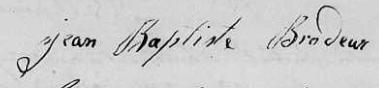 jean Baptiste Brodeur